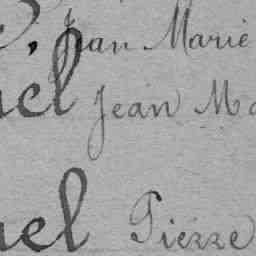 Jean Marie
el Jean Ma
el Pierre